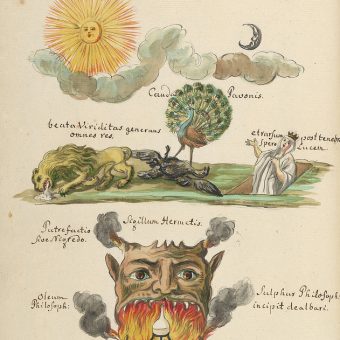 Cauda Pavonis.
beata Viriditas generans
omnes res.
et rursum post tenebras
Spero Lucem.
Sigillum Hermetis.
Putrefactio
sive Nigredo.
Oleum
Philosoph:
Sulphur Philosoph:
incipit dealbari.